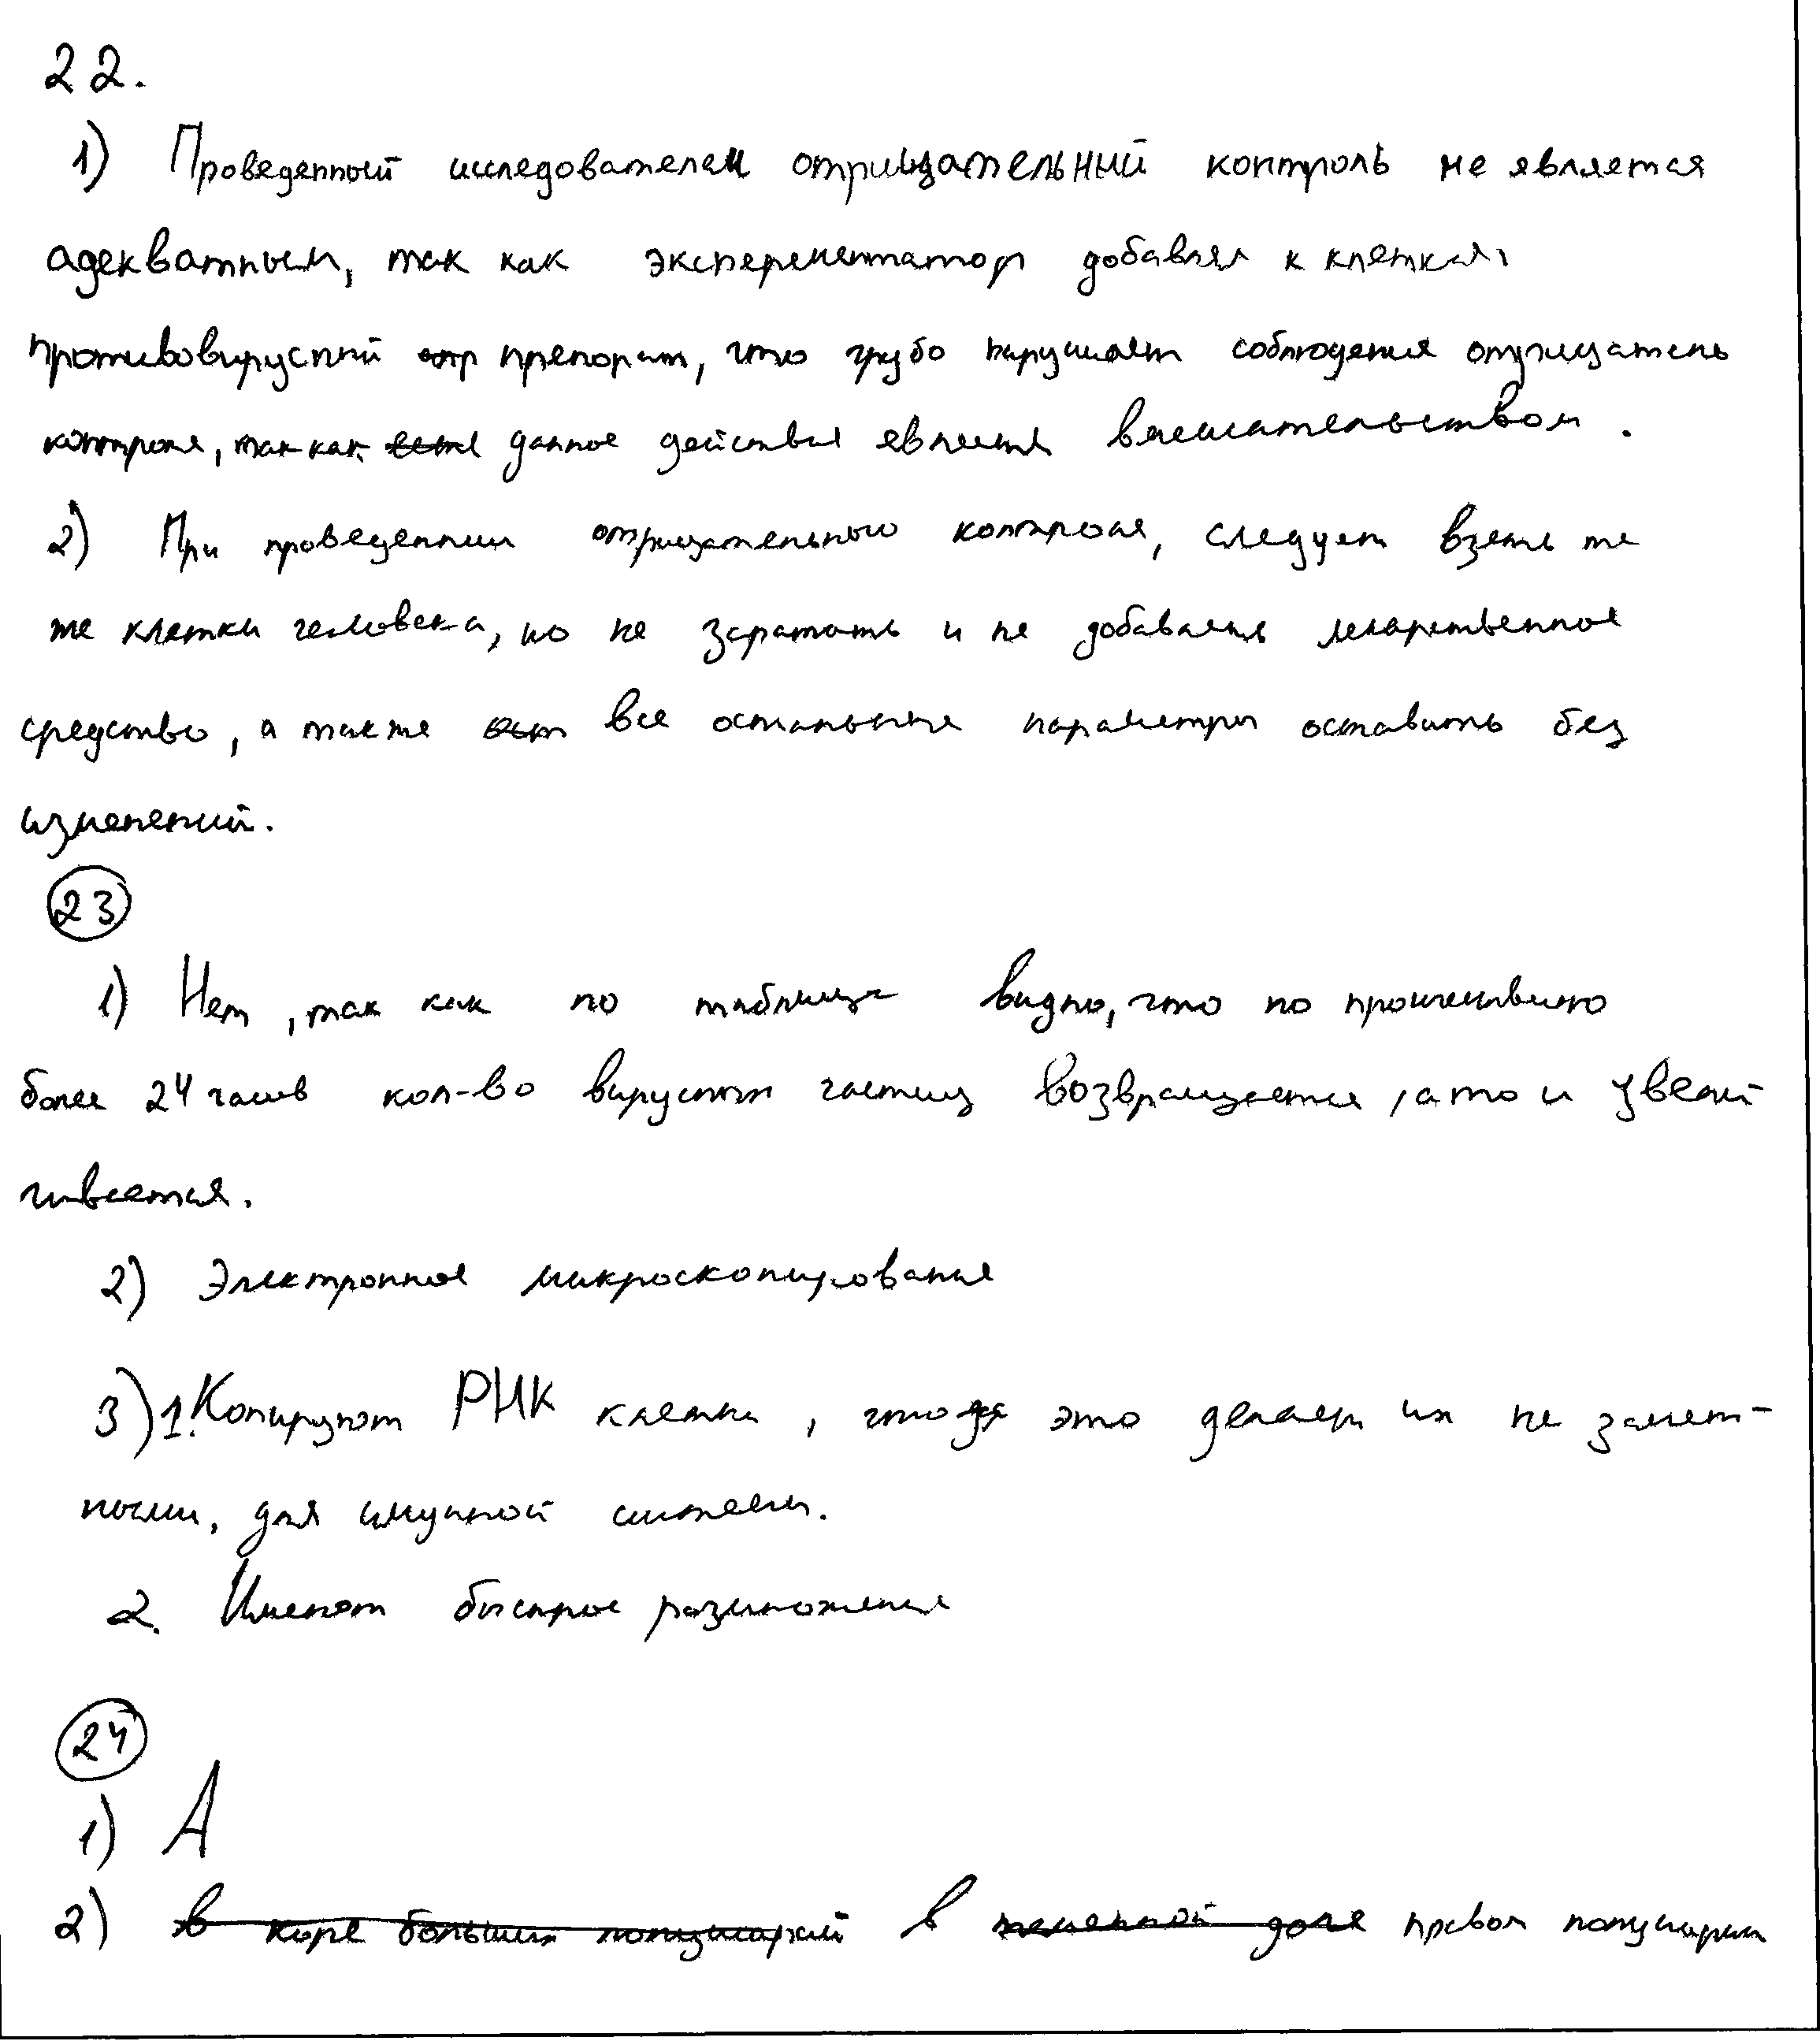 22.
1) Проведенный исследователем отрицательный контроль не является
адекватным, так как эксперементатор добавлял к клеткам
противовирусный препорат, что грубо нарушает соблюдения отрицатель
контроля, так как данное действия является вмешательством.
2) При проведении отрицательного контроля, следует взять те
же клетки человека, но не заражать и не добавлять лекарственное
средство, а также все остальные параметры оставить без
изменений.
23
1) Нет, так как по таблице видно, что по прошествию
более 24 часов кол-во вирусных частиц возвращается, а то и увели
чивается.
2) Электронное микроскопирование
3) 1. Копируют РНК клетки, это делает их не замет-
ными, для имунной системы.
2. Имеют быстрое размножение
24
1) А
2) в правом полушарии